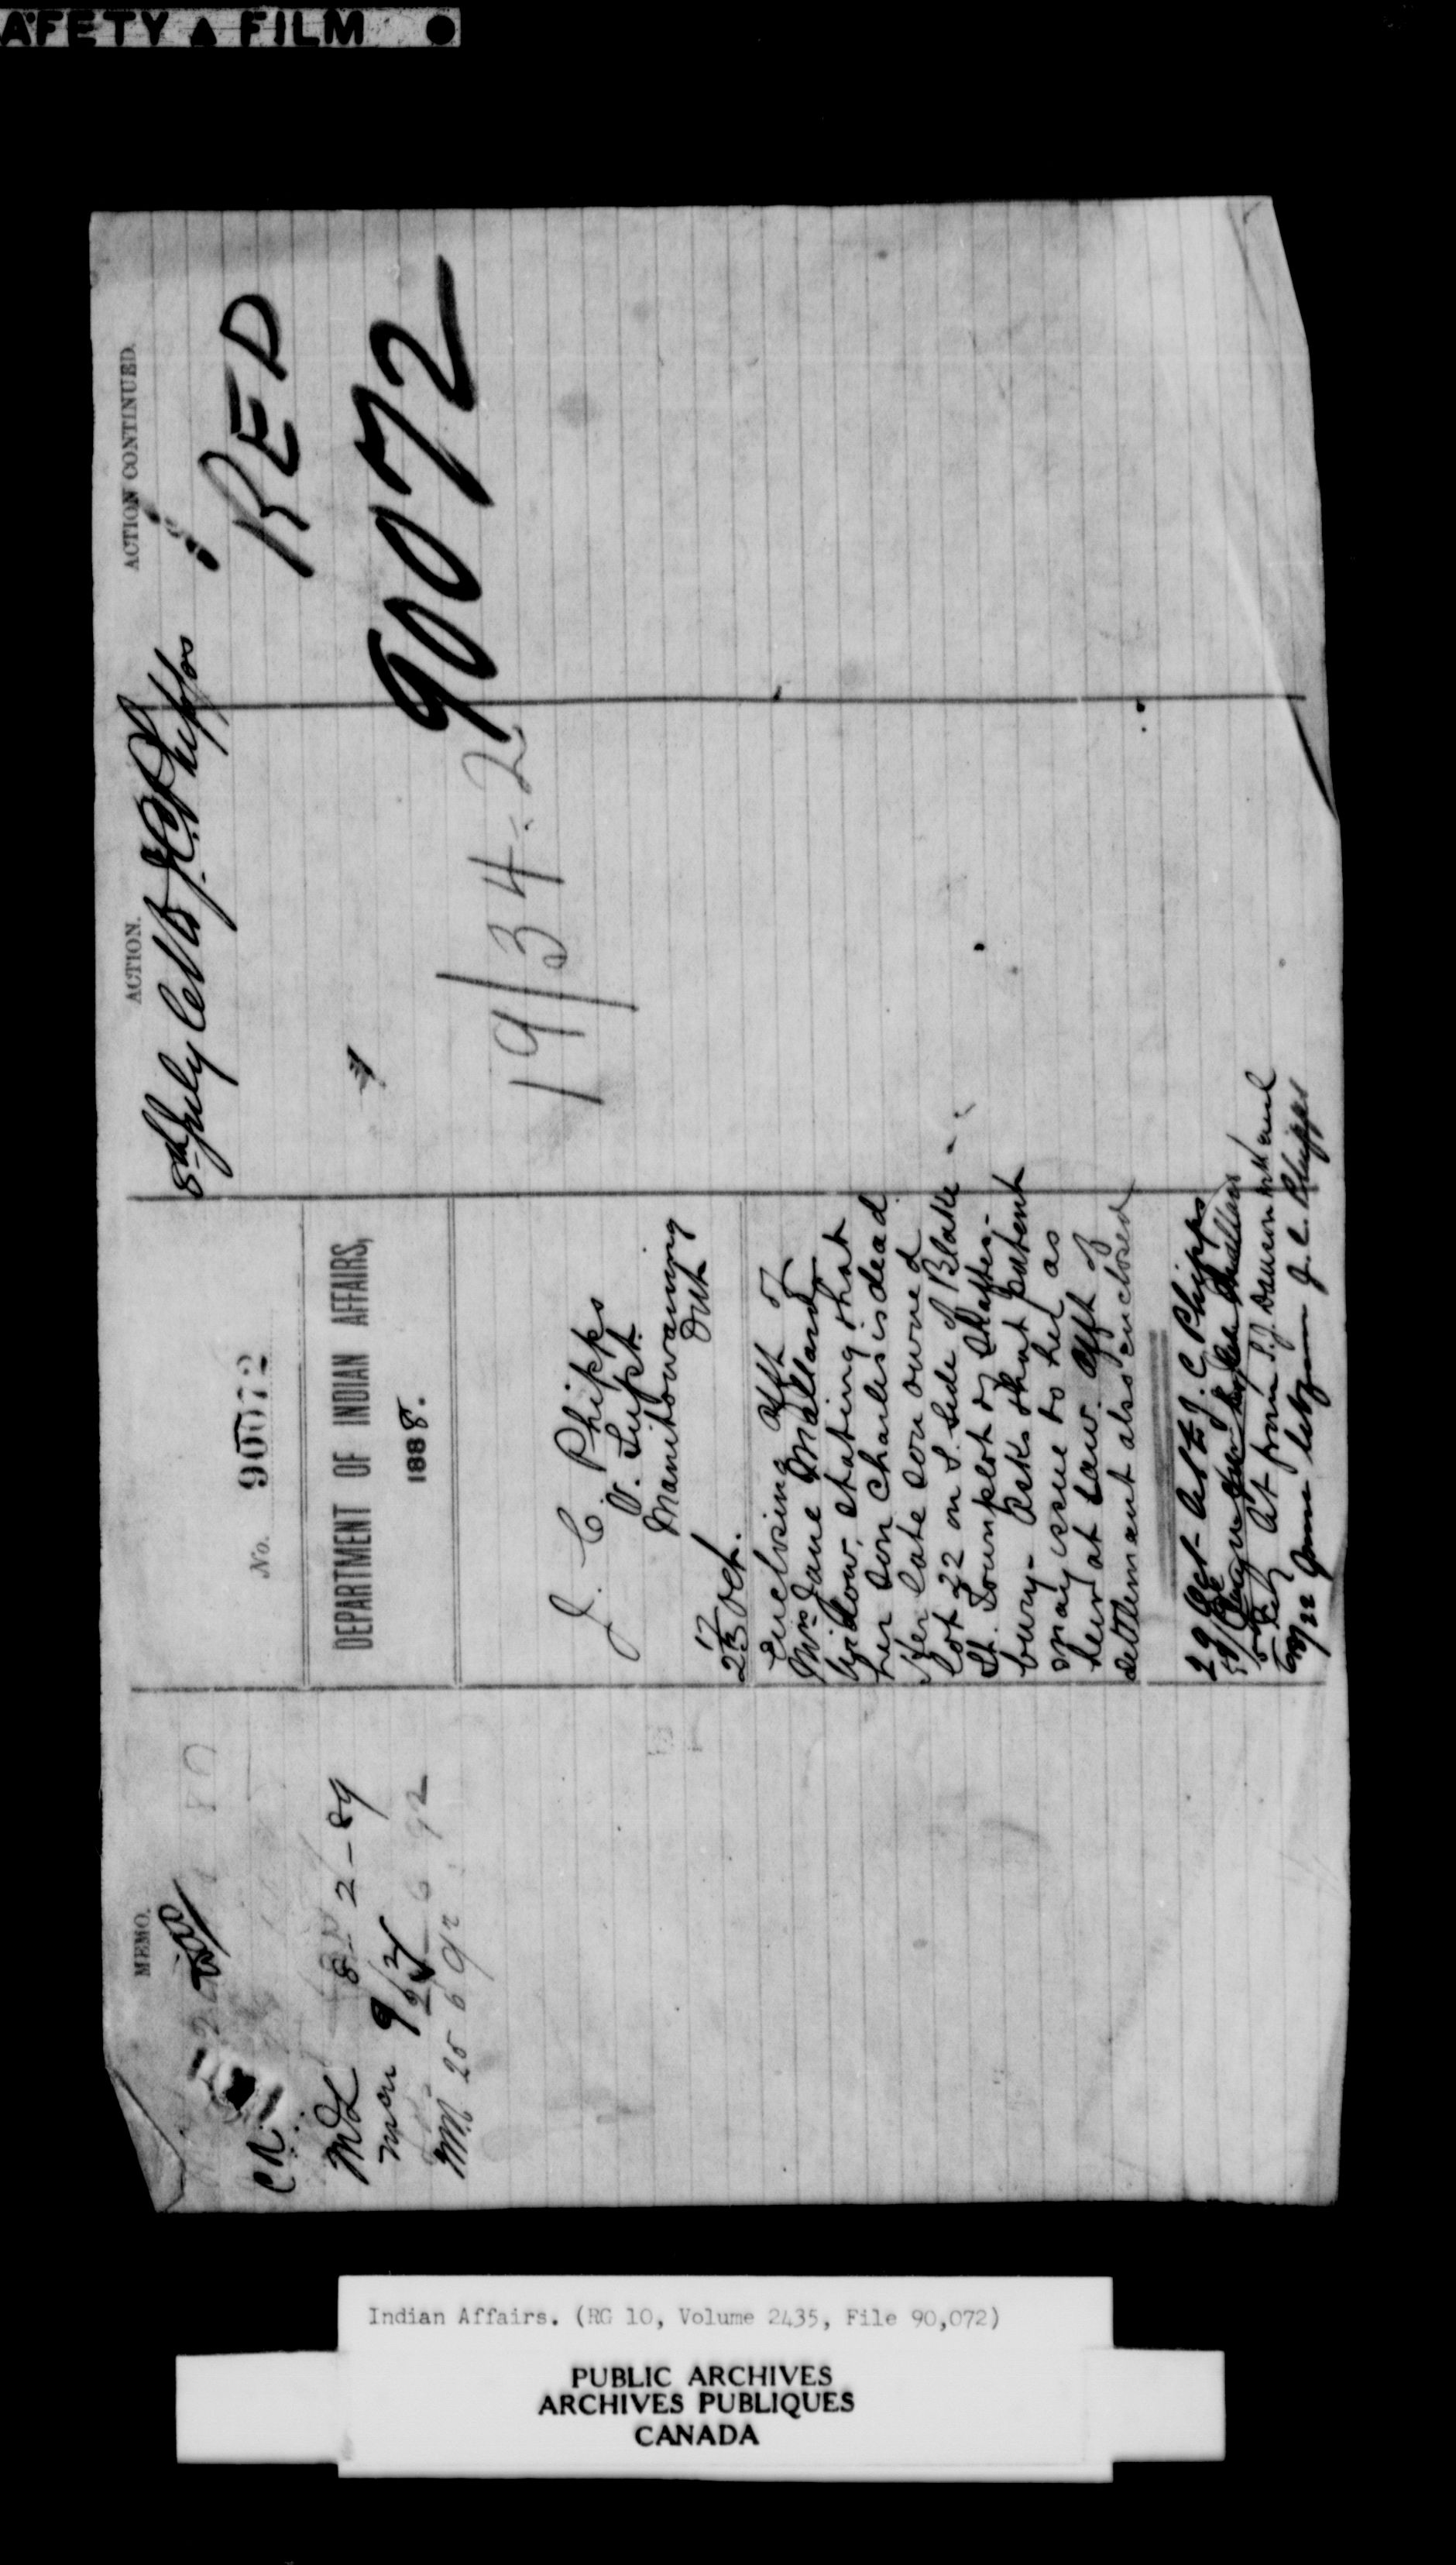 AFETY ▲ FILM ●
MEMO.
C.R.
MDL 8-2-89
9/2
25 6 92
No. 90072
DEPARTMENT OF INDIAN AFFAIRS,
1888.
J. C. Phipps
V. Supt.
Manitowaning
Ont
17
23 Oct.
Enclosing Afft of
Mrs Jane Mallard
Widow, stating that
her son Charles is dead
Her late son owned
lot 22 on S. side of Blake
St. Townplot of Shaftes-
bury - Asks that patent
may issue to her as
heir at law. Afft of
settlement also enclosed
29 Oct - J. C. Phipps
J. C. Phipps
ACTION.
8th July J. C. Phipps
19/34-2
ACTION CONTINUED.
RED
90072
Indian Affairs. (RG 10, Volume 2435, File 90,072)
PUBLIC ARCHIVES
ARCHIVES PUBLIQUES
CANADA